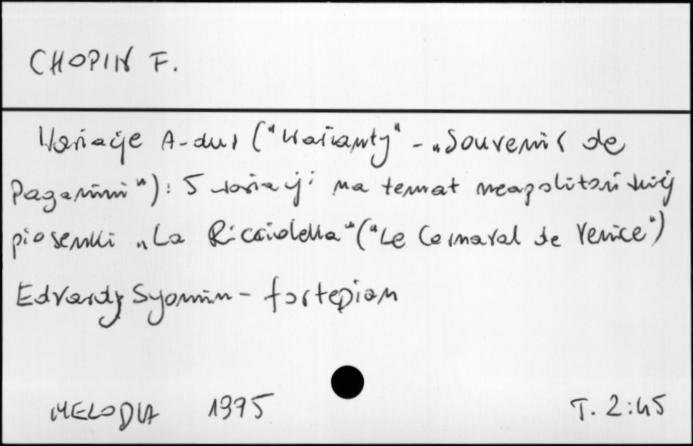 CHOPIN F.
Wariacje A-dur ("Warianty" - „Souvenir de
Paganini"): 5 wariacji na temat neapolitańskiej
piosenki „La Ricciolella" ("Le Carnaval de Venice")
Edvardy Syomin - fortepian
MELODIA 1995 T. 2:45